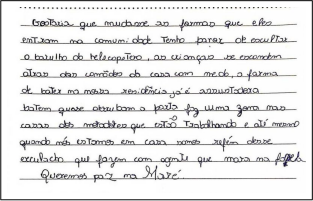 Gostaria que mudasse as formas que eles
entram na comunidade Tento parar de escultar
o barulho do helecopetero, as crianças se escondem
atras dos comodos da casa com medo, a forma
de bater na nossa residência já é assustadora
batem quase derrubam a porta faz uma zona nas
casas dos moradores que estão Trabalhando e até mesmo
quando nós estamos em casa somos refém desse
esculacho que fazem com agente que mora na favela
Queremos paz na Maré.